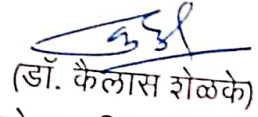 (डॉ. कैलास शेळके)